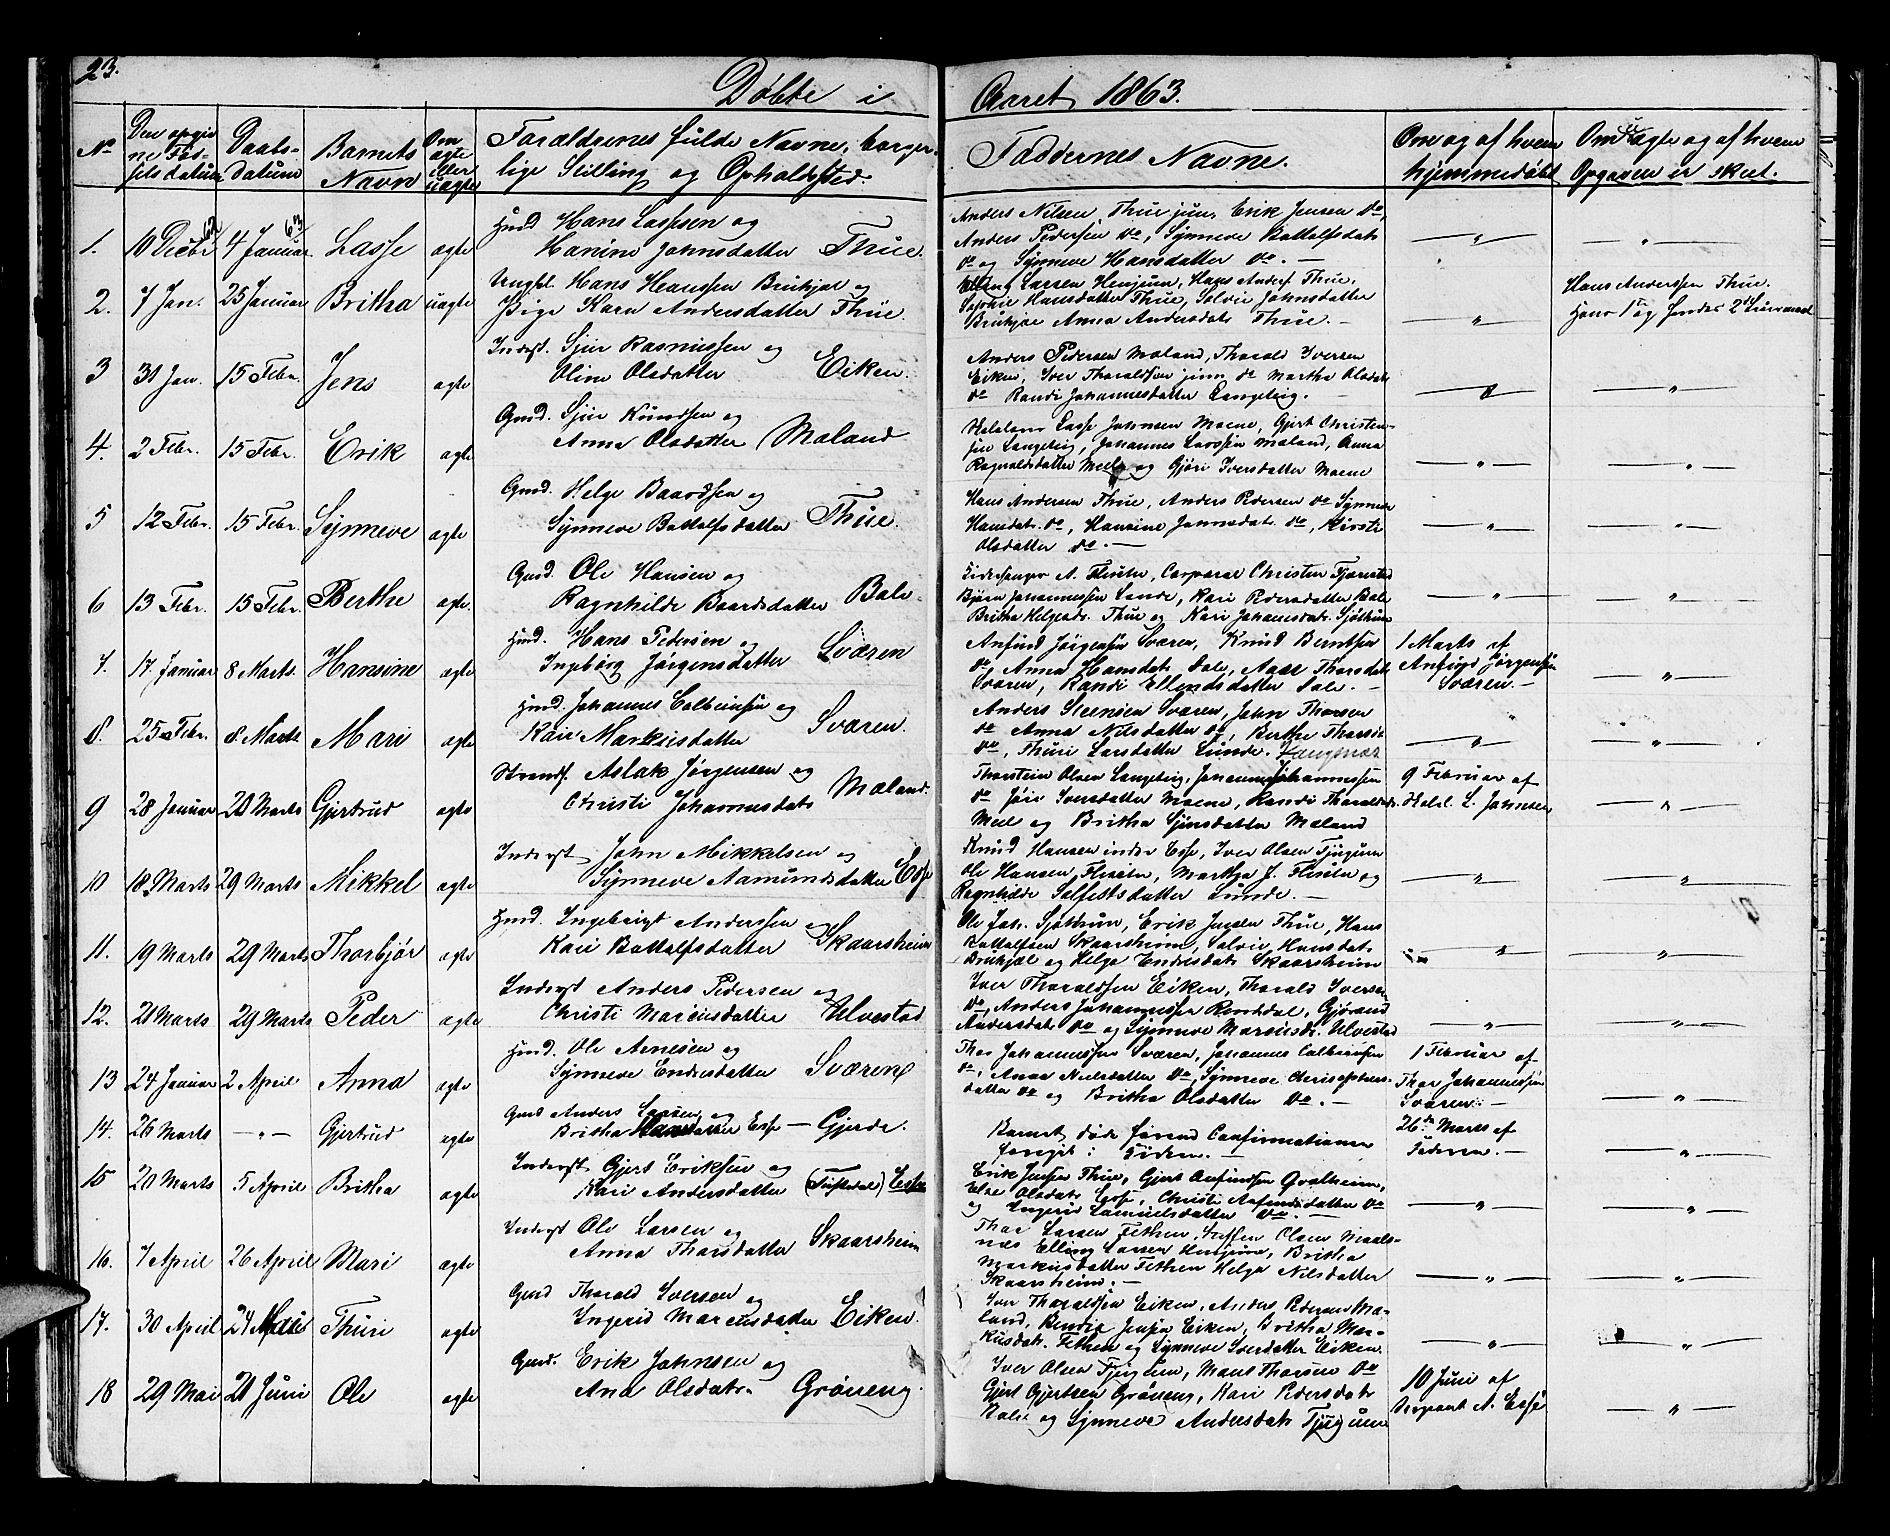 23.
Døbte i Aaret 1863.
No
Den opgivne Fødselsdatum
Daabsdatum
Barnets Navn
Om ægte eller uægte
Forældrenes fulde Navne, borgerlige Stilling og Opholdssted.
Faddernes Navne.
Om og af hvem hjemmedøbt
Om uægte og af hvem Opgaven er skeet.
1. 10 Decbr 62 4 Januar 63 Lasse ægte Huusd. Hans Lassen og
Hanine Johnsdatter Thue.
Anders Nilsen Thue jun, Erik Jensen do,
Anders Pedersen do, Synneve Battalfsdatr
do og Synneve Hansdatter do. —
2. 7 Jan. 25 Januar Britha uægte Ungkl. Hans Hansen Brukjæl og
Pige Kari Andersdatter Thue.
Elling Larsen Henjum, Hans Anders. Thue,
Sophie Hansdatter Thue, Solvie Johnsdatter
Brukjæl Anna Andersdatr Thue. —
Hans Anderssen Thue.
Hans 1ste og hendes 2det Leiermaal
3 31 Jan. 15 Febr. Jens ægte Inderst. Sjur Rasmussen og
Oline Olsdatter Eiken.
Anders Pedersen Moland, Tharald Iversen
Eiken, Iver Tharaldsen jun. do Martha Olsdatr
do Randi Johannesdatter Langeteig. —
4. 2 Febr. 15 Febr. Erik ægte Gmd. Sjur Knudsen og
Anna Olsdatter Moland
Lasse Johnsen Moene, Gjert Christen-
sen Langeteig, Johannes Larssen Moland, Anna
Ragnaldsdatter Meel og Gjøri Iversdatter Moene
5 12 Febr. 15 Febr. Synneve ægte Gmd. Helge Baardsen og
Synneve Battalfsdatter Thue.
Hans Andersen Thue, Anders Pedersen do Synneve
Hansdatr. do, Hansine Johnsdatr. do, Kirsti
Olsdatter do. —
6 13 Febr. 15 Febr. Berthe ægte. Gmd. Ole Hansen og
Ragnhilde Baardsdatter Bale.
A. Flesete, Corporal Christen Fjærestad
Bjørn Johannessen Lunde, Kari Pedersdatter Bale
Britha Helgesdr. Thue og Kari Johannesdatr. Sjøthun
7. 17 Januar 8 Marts. Hansine ægte Huusd. Hans Pedersen og
Ingeborg Jørgensdatter Sværen
Anfind Jørgensen Sværen, Knud Berntsen
do, Anna Hansdatr Dale, Aase Tharsdatr
Sværen, Randi Ellendsdatter Dale. —
1 Marts af
Anfind Jørgensen
Sværen. —
8. 25 Febr. 8 Marts Mari ægte Huusd. Johannes Colbeinsen og
Kari Markusdatter Sværen.
Anders Steensen Sværen, John Tharsen
do Anna Nilsdatter do, Berthe Tharsdr
do, Thuri Larsdatter Lunde.
9 28 Januar 20 Marts Gjertrud ægte Strandf. Aslak Jørgensen og
Christi Johannesdatr Moland.
Thorstein Olsen Langeteig, Johannes Johannessen
do Jøri Iversdatter Moene, Randi Tharaldsdr.
Meel og Britha Sjursdatter Moland
9 Februar af
L. Johnsen
10 18 Marts 29 Marts Mikkel ægte Inderst John Mikkelsen og
Synneve Aamundsdatter Esse
Knud Hansen indre Esse, Iver Olsen Tjugum
Ole Hansen Flesete, Martha J. Flesete og
Ragnhilde Salfestsdatter Lunde. —
11. 19 Marts 29 Marts Thorbjør ægte Huusd. Ingebrigt Anderssen og
Kari Battalfsdatter Skaarsheim
Ole Joh. Sjøthun, Erik Jensen Thue, Hans
Battalfsen Skaarsheim, Solvie Hansdatr.
Brukjæl og Helga Endresdatr Skaarsheim
12. 20 Marts 29 Marts Peder ægte Inderst Anders Pedersen og
Christi Marcusdatter Ulvestad
Iver Tharaldsen Eiken, Tharald Iversen
do, Anders Johannessen Romedal, Gjørand
Andersdatr do og Synneve Marcusdr. Ulvestad
13 24 Januar 2 April Anna ægte Huusd. Ole Arnesen og
Synneve Endresdatter Sværen
Thor Johannessen Sværen, Johannes Colbeinsen
do, Anna Nielsdatter do, Synneve Christophers-
datter do og Britha Olsdatter do. —
1 Februar af
Thor Johannessen
Sværen. —
14. 26 Marts — „ — Gjertrud ægte Gmd Anders Larsen og
Britha Esse — Gjerde.
Barnet døde førend Confirmationen
foregik i Kirken. —
26de Marts af
Faderen. —
15 20 Marts 5 April Britha ægte Inderst Gjert Eriksen og
Kari Andersdatter Esse
Erik Jensen Thue, Gjert Anfindsen Qvalheim,
Else Olsdatr Esse, Christi Anfindsdatter do
og Ingerid Samuelsdatter do. —
16. 7 April 26 April Mari ægte Inderst Ole Larsen og
Anna Tharsdatter Skaarsheim
Thor Larsen Fethen, Steffen Olsen Maals-
næs Elling Larsen Henjum, Britha
Markusdatter Fethen Helga Nilsdatter
Skaarsheim. —
17. 30 April 24 Mai Thuri ægte Gmd Tharald Iversen og
Ingerid Marcusdatter Eiken.
Iver Tharaldsen Eiken, Anders Pedersen Mo-
land, Jensen Eiken, Britha Mar-
kusdatr. Fethen og Synneve Iversdatter Eiken.
18 29 Mai 21 Juni Ole ægte Gmd. Erik Johnsen og
Ana Olsdatr. Grøneng.
Iver Olsen Tjugum, Mons Thorsen do
Gjert Gjertsen Grøneng, Kari Pedersdatr
Bale og Synneve Andersdatr Tjugum
10 Juni af
Sergeant A. Esse